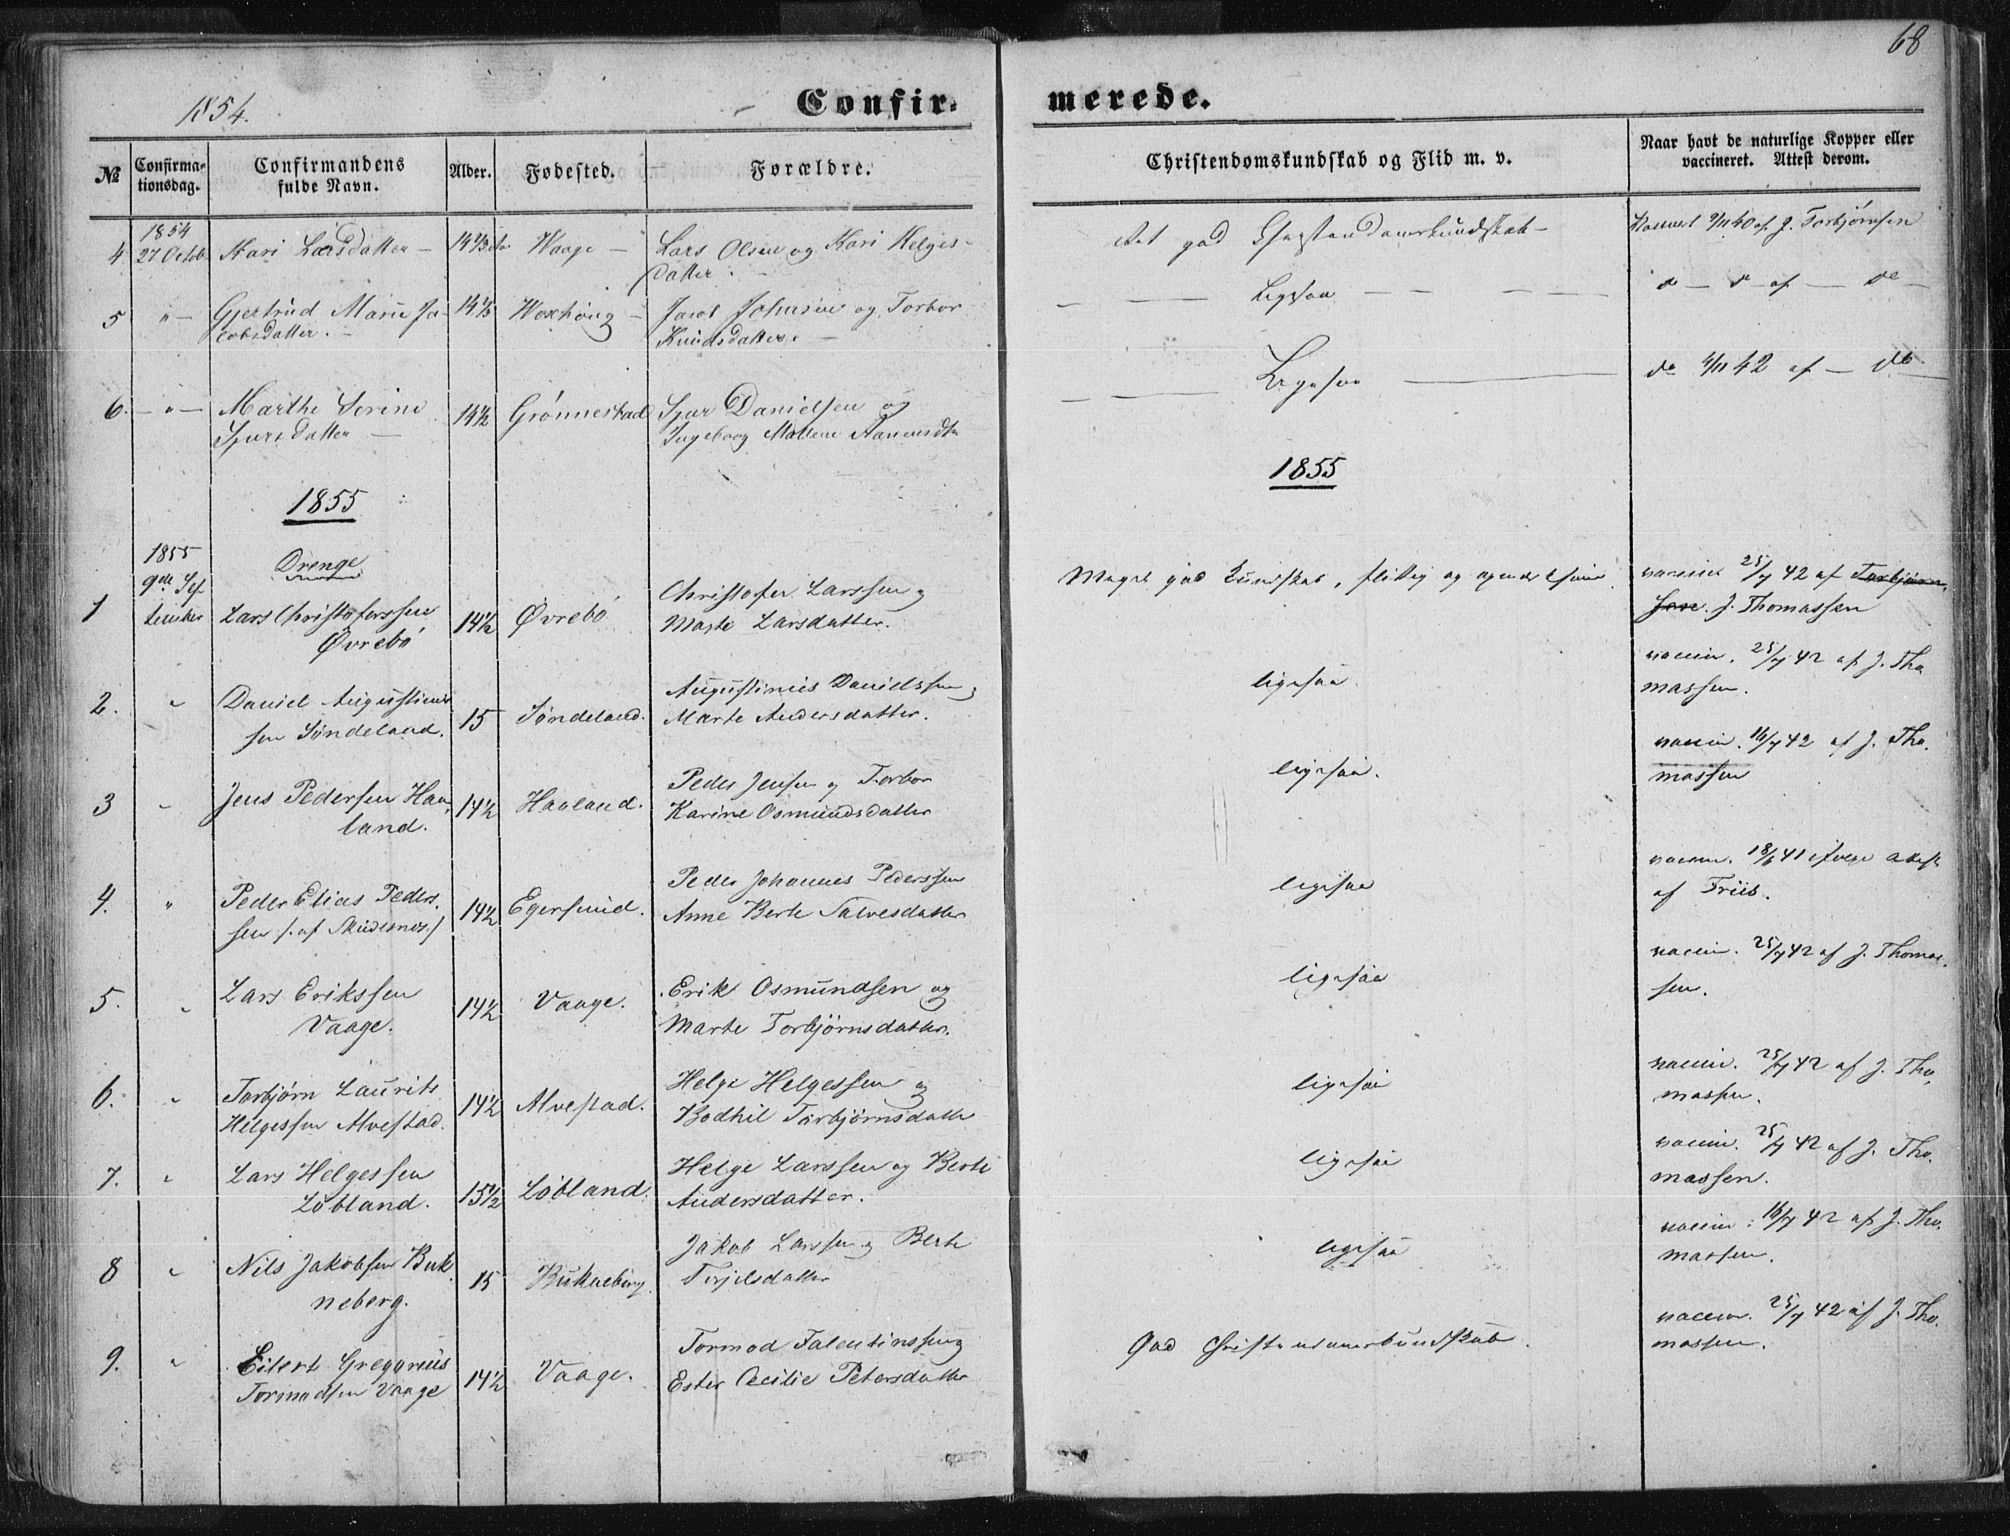 68
1854.
Confir-
merede.
№
Confirma-
tionsdag.
Confirmandens
fulde Navn.
Alder.
Fødested.
Forældre.
Christendomskundskab og Flid m. v.
Naar havt de naturlige Kopper eller
vaccineret. Attest derom.
4
1854
27 Octob
Kari Larsdatter –
Waage –
Lars Olsen og Kari Helges-
datter. –
god Christendomskundskab –
40 af J. Torbjørnsen
5
" –
Gjertrud Marie Ja-
cobsdatter. –
Jacob Johnsen og Torbor
Knudsdatter. –
Ligesaa
6.
– " –
Marthe Serine
Sjursdatter –
14½
Grönnestad
Sjur Danielsen og
Ingeborg Malene
Ligesaa
do 4/11 42 af – do
1855
1855
Drenge
1
1855
9de Sep
tember
Lars Christoferssen
Øvrebö
14½
Øvrebö
Christofer Larssen og
Marte Larsdatter.
Meget god Kundskab, flittig og
25/7 42 af Torbjörn-
sen. J. Thomassen
2.
"
Daniel Augustinus
sen Søndeland.
15
Søndeland.
Augustinus Danielssen og
Marte Andersdatter.
ligesaa
vaccin. 25/7 42 af J. Tho
massen.
3
"
Jens Pedersen Haa
land.
14½
Haaland.
Peder Jensen og Torbor
Karine Osmundsdatter
ligesaa.
vaccin. 16/7 42 af J. Tho.
massen
4.
"
Peder Elias Peders.
sen /: af Skudesnes /
14½
Egersund.
Peder Johannes Pederssen
Anne Berte Salvesdatter
ligesaa
vaccin. 41
af Friis.
5.
"
Lars Erikssen
Vaage.
14½
Vaage.
Erik Osmundsen og
Marte Torbjørnsdatter.
ligesaa
vaccin. 25/7 42 af J. Thomas.
sen.
6.
"
Torbjørn Laurits
Helgessen Alvestad.
14½
Alvestad.
Helge Helgessen og
Bodhil Torbjørnsdatter
ligesaa
vaccin. 25/7 42 af J. Tho.
massen.
7.
"
Lars Helgessen
Löbland.
15½
Löbland.
Helge Larssen og Berte
Andersdatter.
ligesaa
vaccin. 25/7 42 af J. Tho.
massen.
8
"
Nils Jakobsen Buk
neberg.
15
Bukneberg.
Jakob Larssen og Berte
Terjelsdatter
ligesaa
vaccin. 16/7 42 af J. Tho.
massen.
9.
"
Eilert Gregorius
Tormodsen Vaage
14½
Vaage.
Tormod Falentinssen og
Ester Cecilie Petersdatter
God Christendomskundskab.
vaccin. 25/7 42 af J. Tho.
massen.